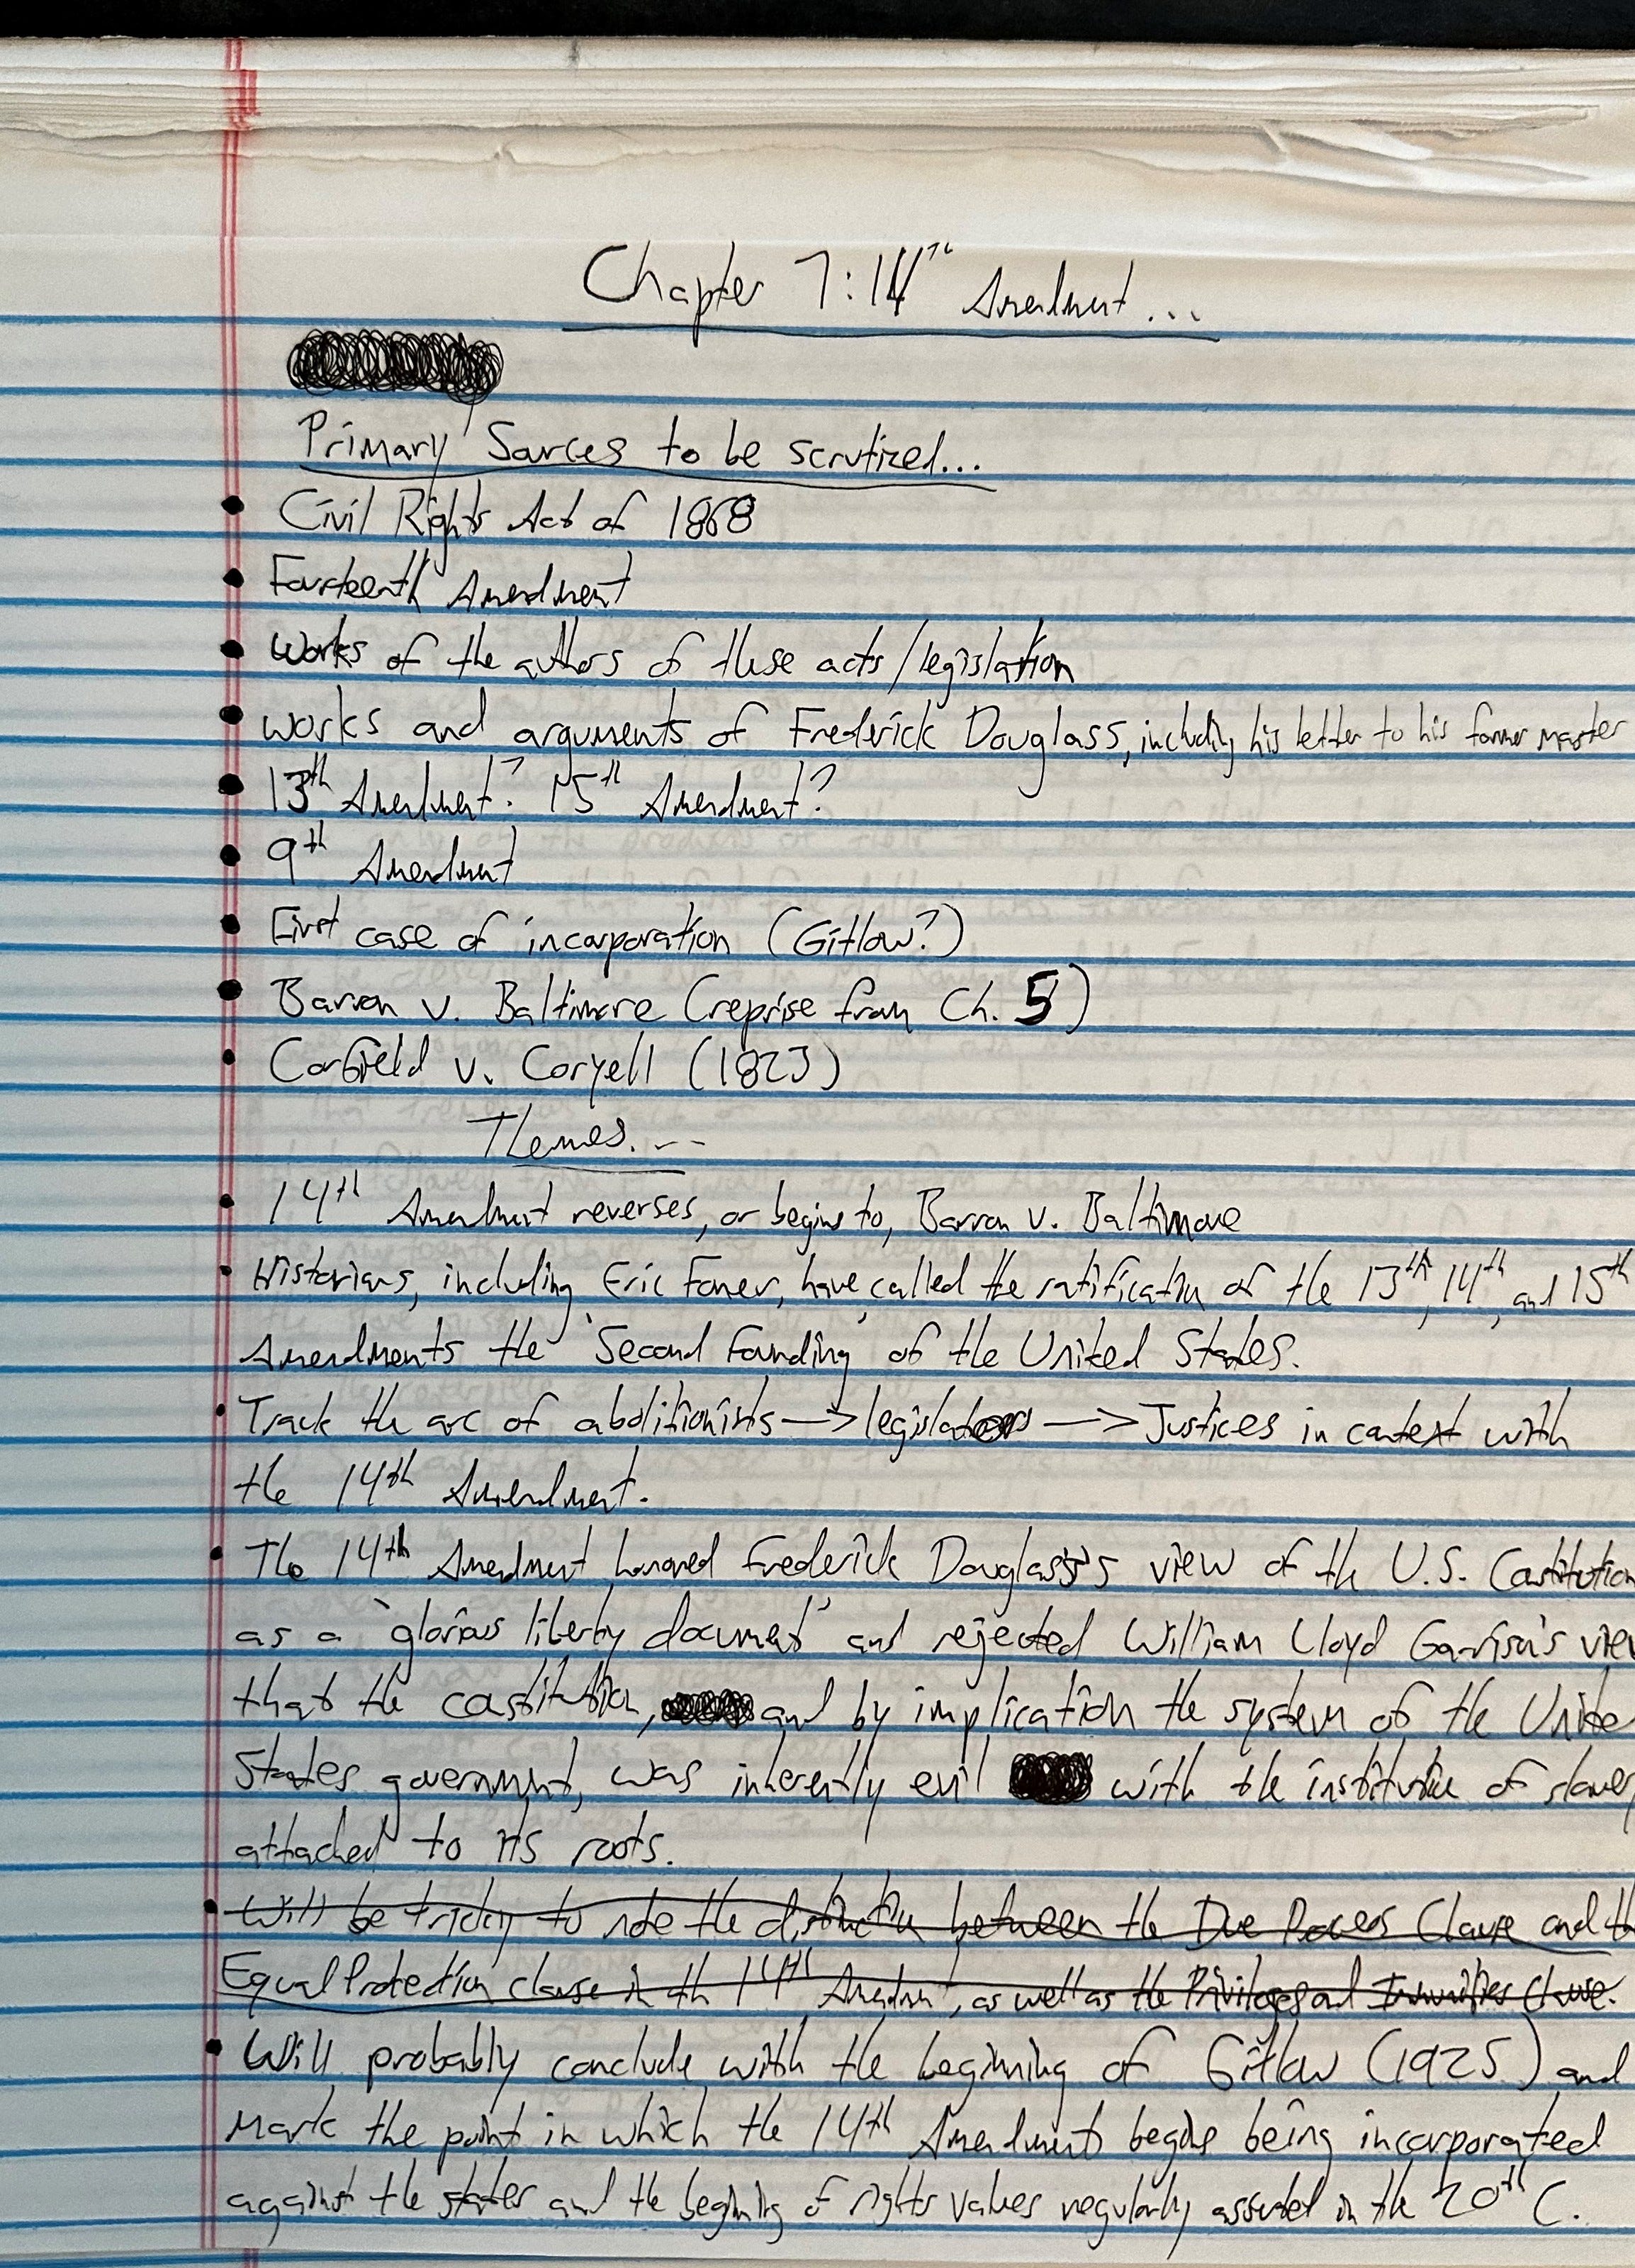 Chapter 7: 14th Amendment...
Primary Sources to be scrutized...
• Civil Rights Act of 1868
• Fourteenth Amendment
• Works of the authors of these acts/legislation
• works and arguments of Frederick Douglass, including his letter to his former master
• 13th Amendment? 15th Amendment?
• 9th Amendment
• First case of incorporation (Gitlow?)
• Barron v. Baltimore (reprise from Ch. 5)
• Corfield v. Coryell (1823)
Themes...
• 14th Amendment reverses, or begins to, Barron v. Baltimore
• Historians, including Eric Foner, have called the ratification of the 13th, 14th, and 15th
Amendments the 'Second Founding' of the United States.
• Track the arc of abolitionists —> legislators —> Justices in context with
the 14th Amendment.
• The 14th Amendment honored Frederick Douglass's view of the U.S. Constitution
as a 'glorious liberty document' and rejected William Lloyd Garrison's view
that the constitution, and by implication the system of the Unite
States government, was inherently evil with the institution of slavery
attached to its roots.
• Will be tricky to note the distinction between the Due Process Clause and th
Equal Protection clause in th 14th Amendment, as well as the Privileges and Immunities Clause.
• Will probably conclude with the beginning of Gitlow (1925) and
mark the point in which the 14th Amendment begins being incorporated
against the states and the beginning of rights values regularly asserted in the 20th C.